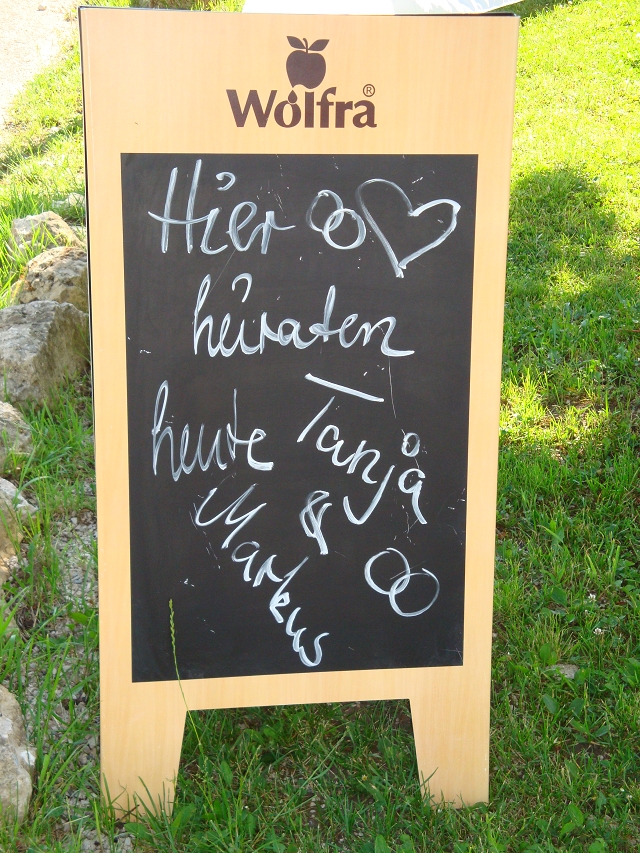 Wolfra®
Hier
heiraten
heute Tanja
&
Markus